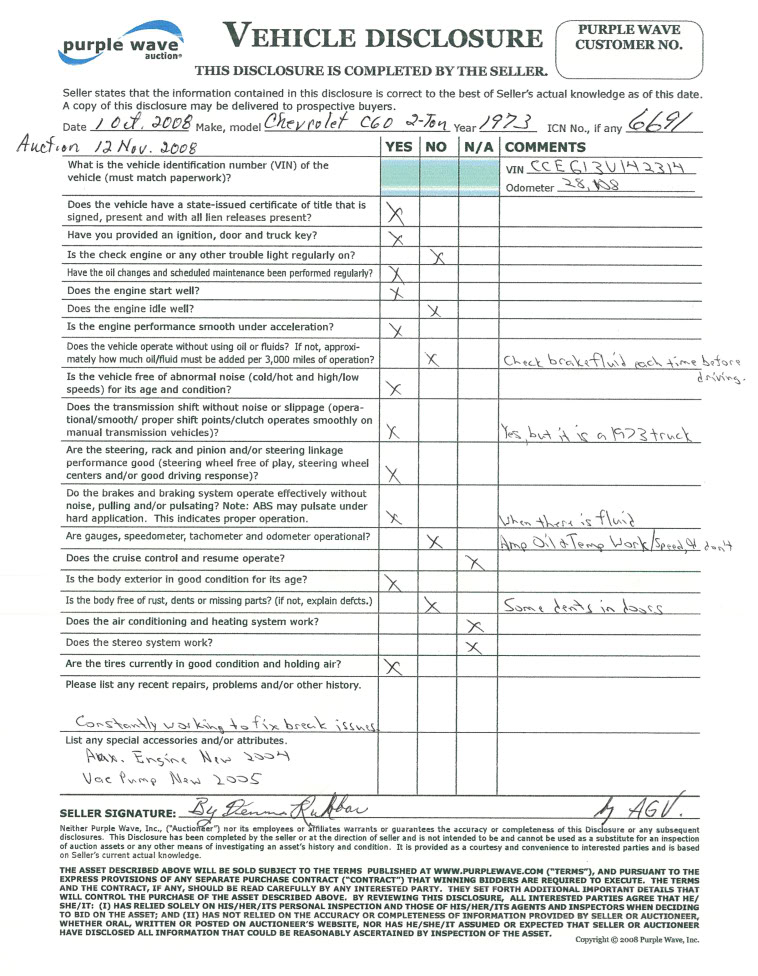 purple wave
auction®
VEHICLE DISCLOSURE
PURPLE WAVE
CUSTOMER NO.
THIS DISCLOSURE IS COMPLETED BY THE SELLER.
Seller states that the information contained in this disclosure is correct to the best of Seller's actual knowledge as of this date.
A copy of this disclosure may be delivered to prospective buyers.
Date 1 Oct. 2008 Make, model Chevrolet C60 2-Ton Year 1973 ICN No., if any 6691
Auction 12 Nov. 2008
YES NO N/A COMMENTS
What is the vehicle identification number (VIN) of the
vehicle (must match paperwork)?
VIN CCE613V142314
Odometer 28,
Does the vehicle have a state-issued certificate of title that is
signed, present and with all lien releases present? X
Have you provided an ignition, door and truck key? X
Is the check engine or any other trouble light regularly on? X
Have the oil changes and scheduled maintenance been performed regularly? X
Does the engine start well? X
Does the engine idle well? X
Is the engine performance smooth under acceleration? X
Does the vehicle operate without using oil or fluids? If not, approxi-
mately how much oil/fluid must be added per 3,000 miles of operation? X Check brake fluid each time before
driving.
Is the vehicle free of abnormal noise (cold/hot and high/low
speeds) for its age and condition? X
Does the transmission shift without noise or slippage (opera-
tional/smooth/ proper shift points/clutch operates smoothly on
manual transmission vehicles)? X Yes, but it is a 1973 truck
Are the steering, rack and pinion and/or steering linkage
performance good (steering wheel free of play, steering wheel
centers and/or good driving response)? X
Do the brakes and braking system operate effectively without
noise, pulling and/or pulsating? Note: ABS may pulsate under
hard application. This indicates proper operation. X When there is fluid
Are gauges, speedometer, tachometer and odometer operational? X Amp Oil & Temp Work/Speed, don't
Does the cruise control and resume operate? X
Is the body exterior in good condition for its age? X
Is the body free of rust, dents or missing parts? (if not, explain defcts.) X Some dents in doors
Does the air conditioning and heating system work? X
Does the stereo system work? X
Are the tires currently in good condition and holding air? X
Please list any recent repairs, problems and/or other history.
Constantly working to fix break issues
List any special accessories and/or attributes.
Engine New 2004
Vac Pump New 2005
SELLER SIGNATURE: By by AGV.
Neither Purple Wave, Inc., ("Auctioneer") nor its employees or affiliates warrants or guarantees the accuracy or completeness of this Disclosure or any subsequent
disclosures. This Disclosure has been completed by the seller or at the direction of seller and is not intended to be and cannot be used as a substitute for an inspection
of auction assets or any other means of investigating an asset's history and condition. It is provided as a courtesy and convenience to interested parties and is based
on Seller's current actual knowledge.
THE ASSET DESCRIBED ABOVE WILL BE SOLD SUBJECT TO THE TERMS PUBLISHED AT WWW.PURPLEWAVE.COM ("TERMS"), AND PURSUANT TO THE
EXPRESS PROVISIONS OF ANY SEPARATE PURCHASE CONTRACT ("CONTRACT") THAT WINNING BIDDERS ARE REQUIRED TO EXECUTE. THE TERMS
AND THE CONTRACT, IF ANY, SHOULD BE READ CAREFULLY BY ANY INTERESTED PARTY. THEY SET FORTH ADDITIONAL IMPORTANT DETAILS THAT
WILL CONTROL THE PURCHASE OF THE ASSET DESCRIBED ABOVE. BY REVIEWING THIS DISCLOSURE, ALL INTERESTED PARTIES AGREE THAT HE/
SHE/IT: (I) HAS RELIED SOLELY ON HIS/HER/ITS PERSONAL INSPECTION AND THOSE OF HIS/HER/ITS AGENTS AND INSPECTORS WHEN DECIDING
TO BID ON THE ASSET; AND (II) HAS NOT RELIED ON THE ACCURACY OR COMPLETENESS OF INFORMATION PROVIDED BY SELLER OR AUCTIONEER,
WHETHER ORAL, WRITTEN OR POSTED ON AUCTIONEER'S WEBSITE, NOR HAS HE/SHE/IT ASSUMED OR EXPECTED THAT SELLER OR AUCTIONEER
HAVE DISCLOSED ALL INFORMATION THAT COULD BE REASONABLY ASCERTAINED BY INSPECTION OF THE ASSET.
Copyright © 2008 Purple Wave, Inc.